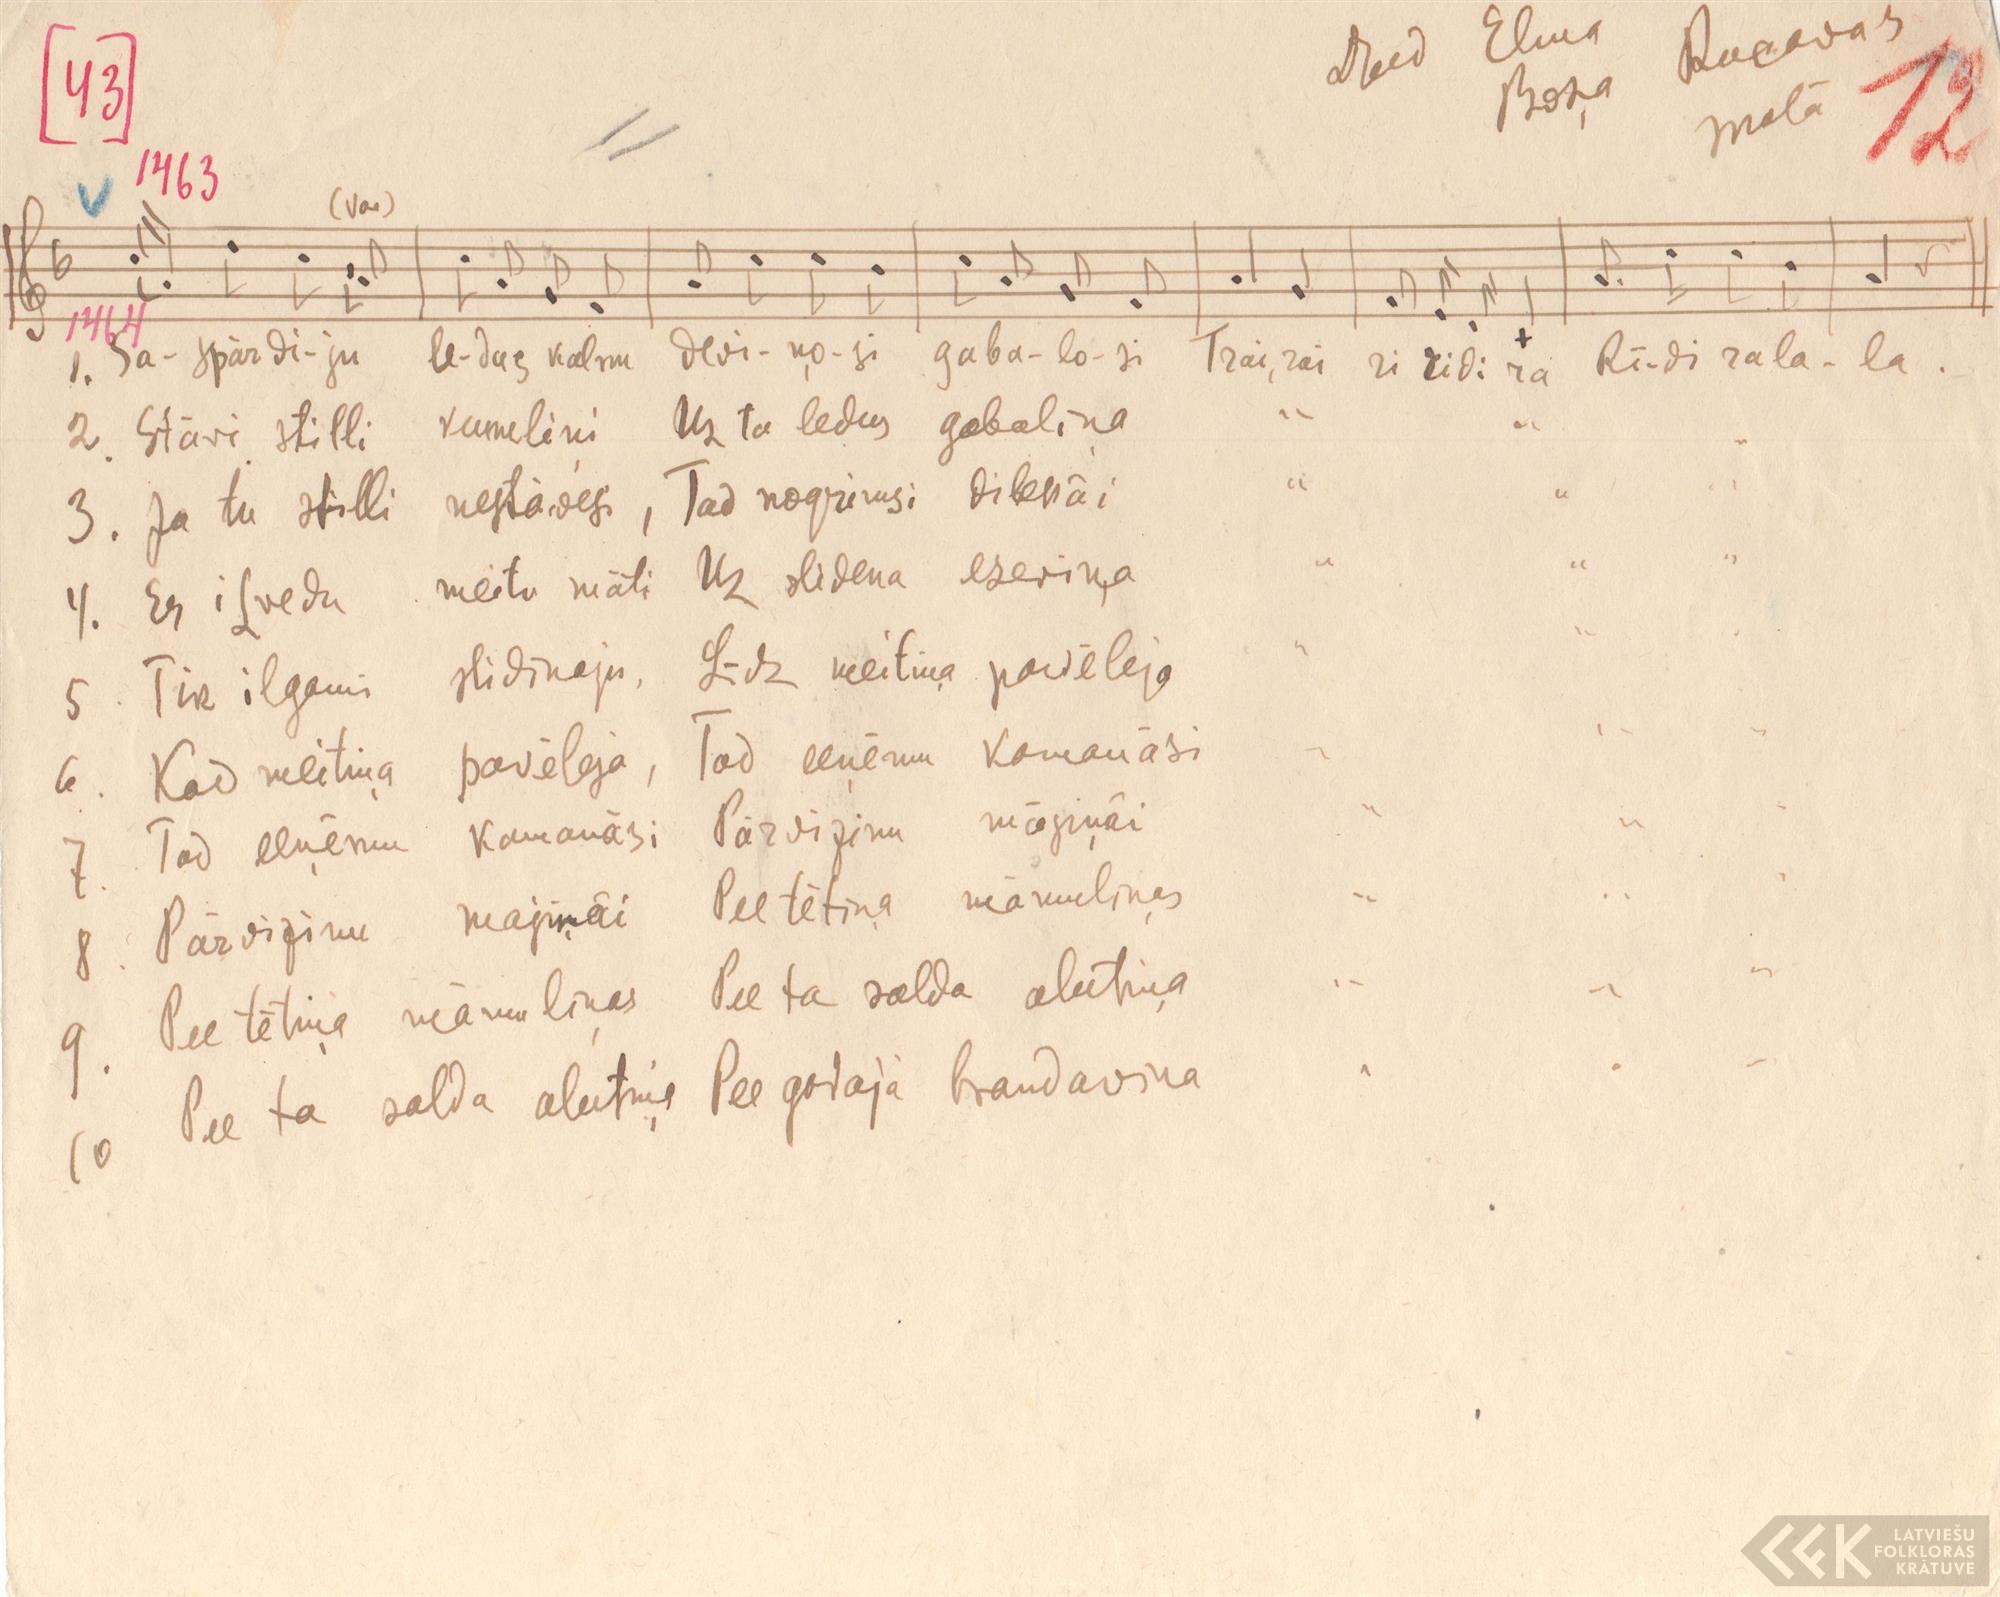 [43]
Dzied Elma Rucavas
Boža malā
12
1463
(Var)
1464
1. Sa-spārdi-ju le-dus kalnu devi-ņo-si gaba-lo-si Trai, rai ri ridi ra Rī-di rala-la.
2. Stāvi stilli kumeliņi Uz ta ledus gabaliņa " " "
3. Ja tu stilli nestāvesi, Tad nogrimsi dibenāi " " "
4. Es iʃvedu meitu māti Uz slidena ezeriņa " " "
5. Tik ilgami slidīnaju, Līdz meitiņa pavēleja " " "
6. Kad meitiņa pavēleja, Tad eeņēmu kamanāsi " " "
7. Tad eeņēmu kamanāsi Pārviʒinu mājiņāi " " "
8. Pārviʒinu majiņāi Pee tētiņa māmuliņas " " "
9. Pee tētiņa māmuliņas Pee ta salda alutiņa " " "
10 Pee ta salda alutiņa Pee gořaja brandavina " " "
LATVIEŠU
FOLKLORAS
KRĀTUVE